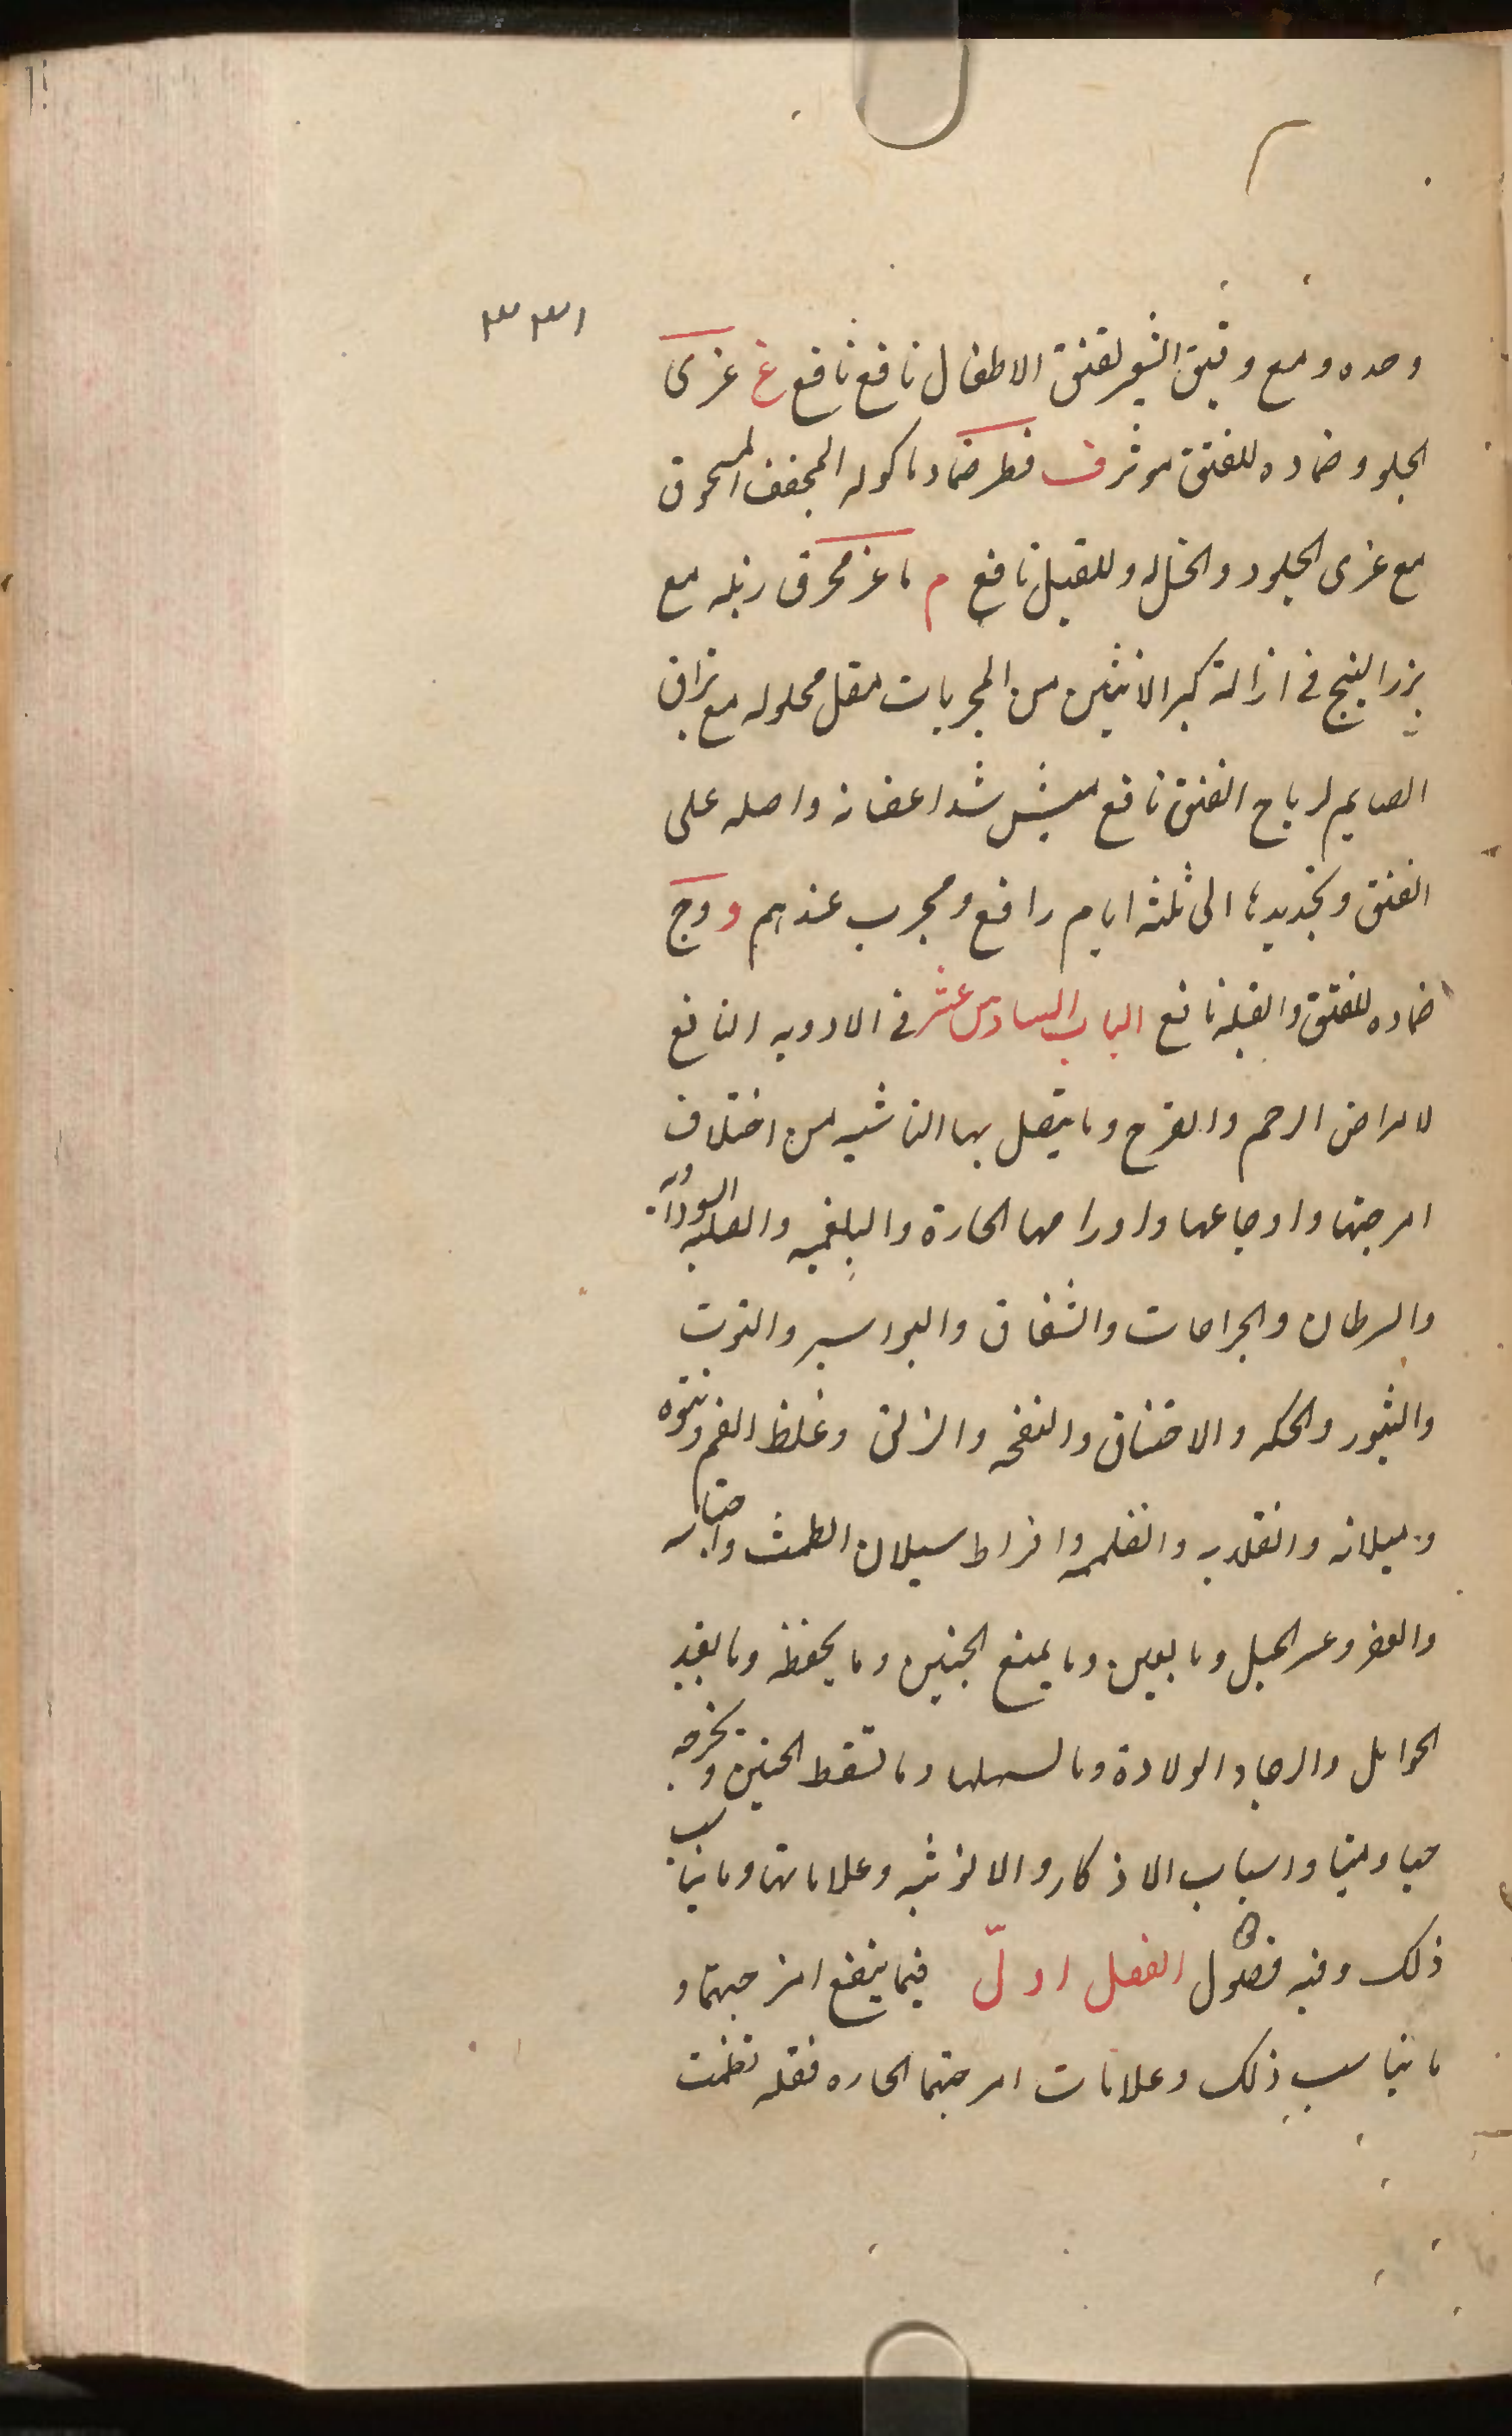 ٣٣١
وحده ومع دقيق الشعير لفتق الاطفال نافع نافع غ غرى
الجلود ضماده للفتق موثر ف فطر ضماد ماكوله المجفف المسحوق
مع غرى الجلود والخل وللقيل نافع م ماعز محرق زبله مع
بزر البنج فى ازالة كبر الانثيين من المجربات مقل محلوله مع بزاق
الصايم لرياح الفتق نافع شد اعضانه واصله على
الفتق وتجديدها الى ثلثة ايام رافع ومجرب عندهم و وج
ضماده للفتق والقيله نافع الباب السادس عشر فى الادويه النافع
لامراض الرحم والفرج وما يتصل بها الناشيه من اختلاف
امزجتها واوجاعها واورامها الحارة والبلغميه والصلبه السوداويه
والسرطان والجراحات والشقاق والبواسير والتوت
والبثور والحكه والاختناق والنفخه والزلق وغلظ الفم ونتوه
وميلانه وانقلابه وانضمامه وافراط سيلان الطمث واحتباسه
والعقر وعسر الحبل وما يعين وما يمنع الجنين وما يحفظه وما يفيد
الحوامل والرجا والولادة وما يسهلها وما يسقط الجنين ويخرجه
حيا وميتا واسباب الاذكار والانوثيه وعلاماتها وما يناسب
ذلك وفيه فصول الفصل اول فيما ينفع امزجتها و
ما يناسب ذلك وعلامات امزجتها الحاره فقله طمث